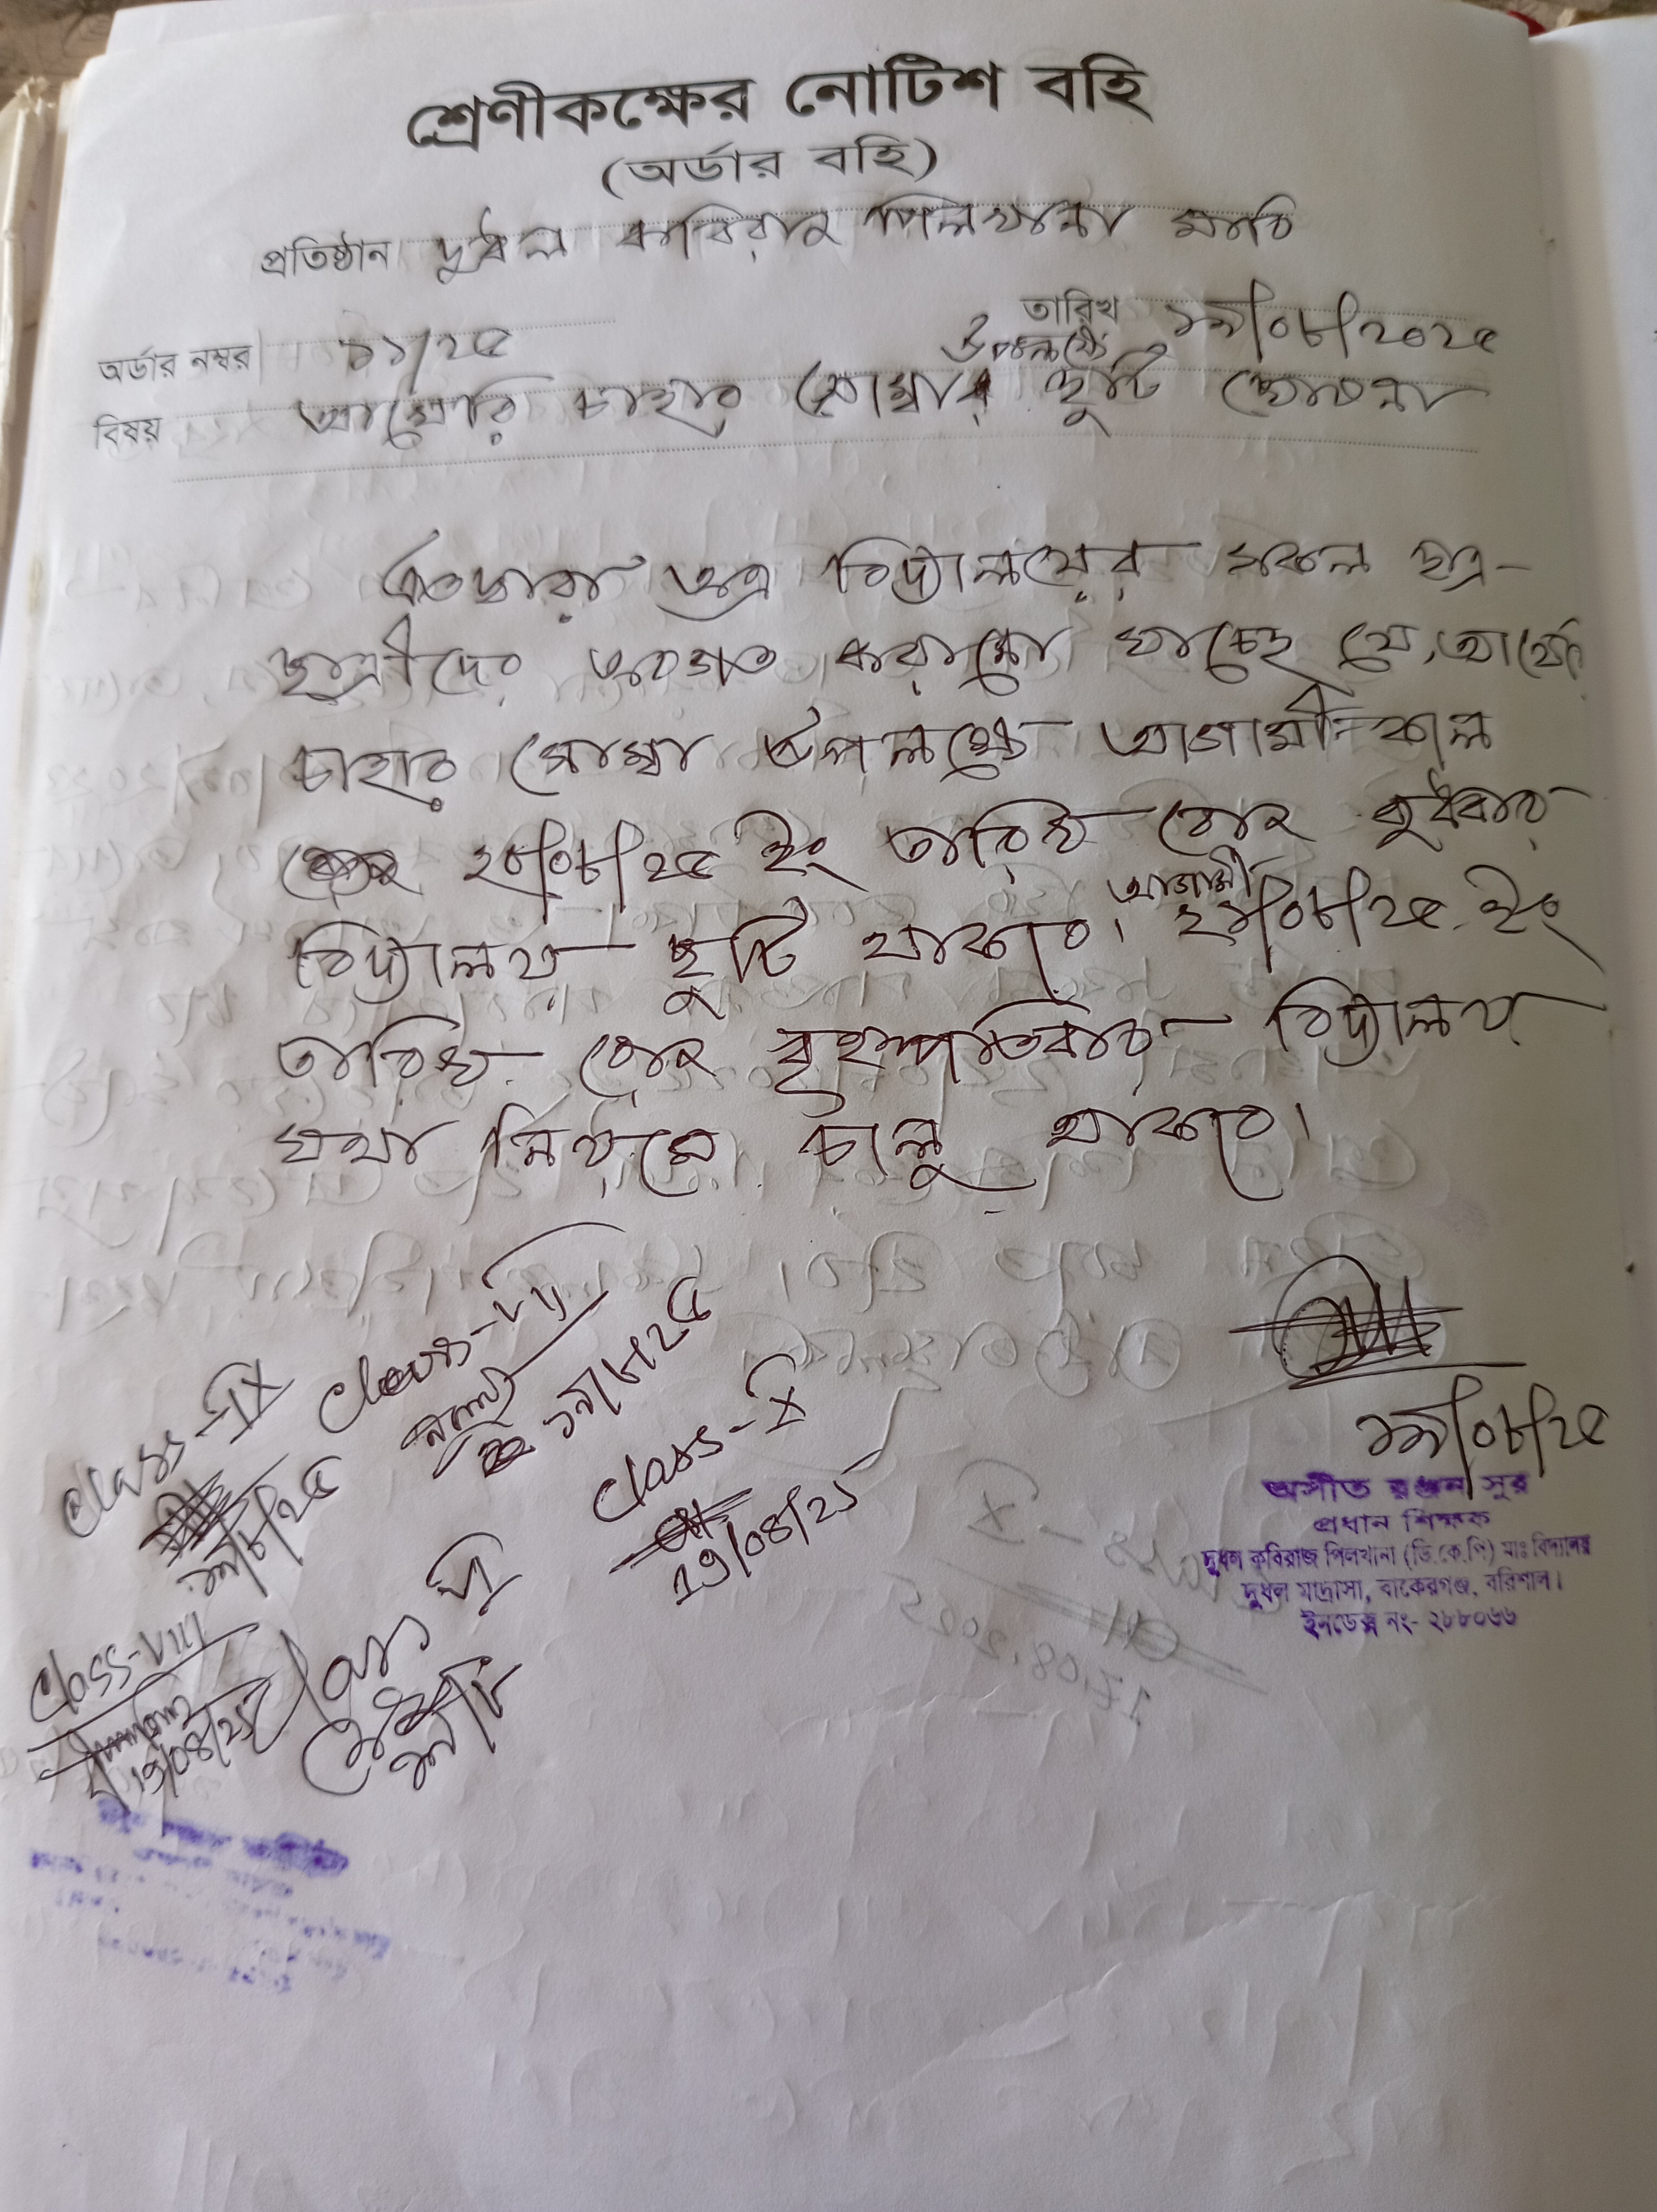 শ্রেণীকক্ষের নোটিশ বহি
(অর্ডার বহি)
প্রতিষ্ঠান দুধল কবিরাজ পিলখানা মাঃবি
তারিখ ১৯/০৮/২০২৫
অর্ডার নম্বর ১১/২৫
উপলক্ষ্যে
বিষয় আখেরি চাহার সোম্বার ছুটি ঘোষনা
এতদ্বারা অত্র বিদ্যালয়ের সকল ছাত্র-
ছাত্রীদের অবগত করানো যাচ্ছে যে, আখেরি
চাহার সোম্বা উপলক্ষ্যে আগামী কাল
২০/০৮/২৫ ইং তারিখ রোজ বুধবার
আগামী
বিদ্যালয় ছুটি থাকবে। ২১/০৮/২৫ ইং
তারিখ রোজ বৃহস্পতিবার বিদ্যালয়
যথা নিয়মে চালু থাকবে।
Class-VII
১৯/৮/২৫
Class-IX
১৯/৮/২৫
Class-X
19/08/25
১৯/০৮/২৫
অসীত রঞ্জন সুর
প্রধান শিক্ষক
দুধল কবিরাজ পিলখানা (ডি.কে.পি) মাঃ বিদ্যালয়
দুধল মাদ্রাসা, বাকেরগঞ্জ, বরিশাল।
ইনডেক্স নং- ২৮৮০৬৬
Class-VIII
19/08/25
Class VI